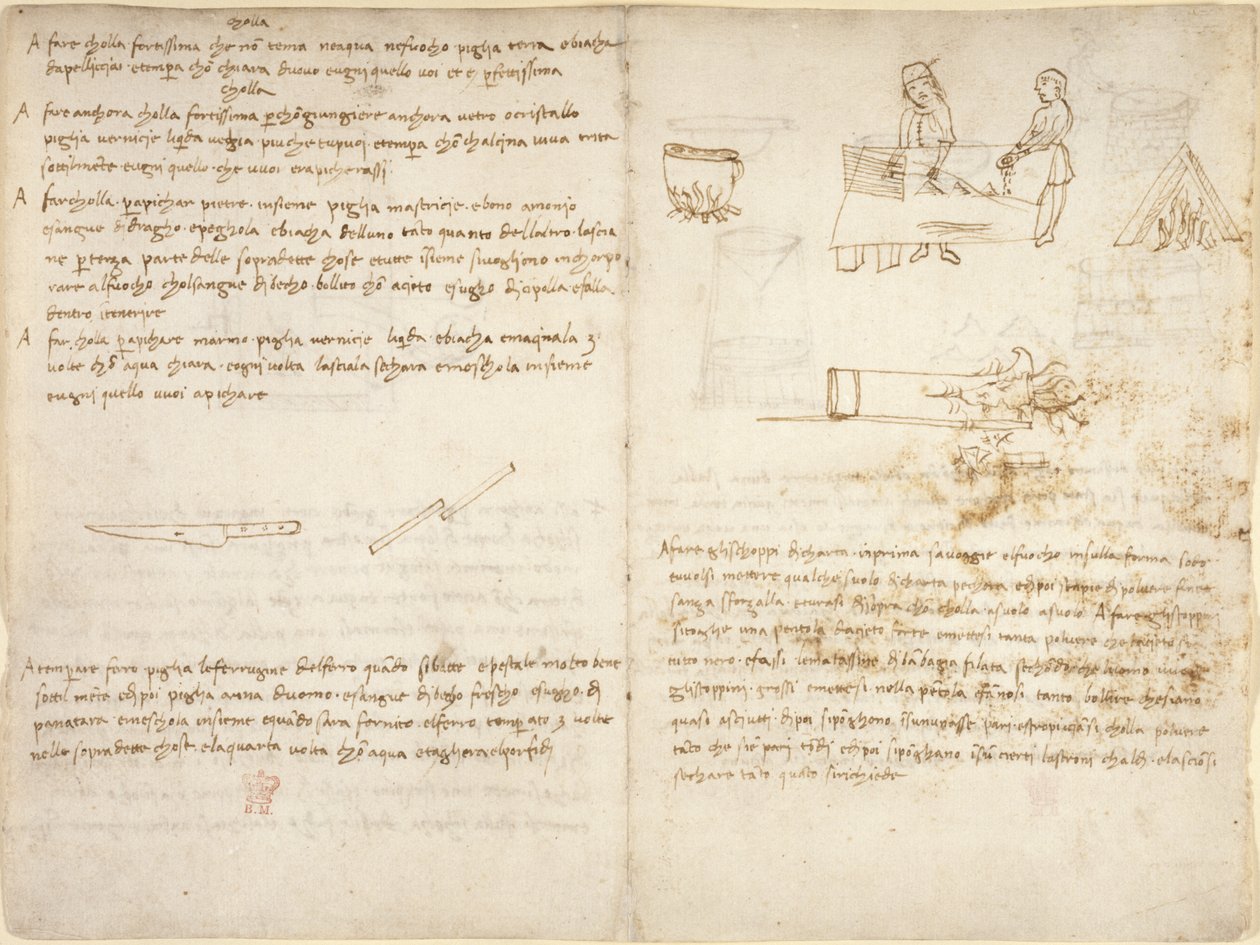 cholla
A fare cholla fortissima che nõ tema neaqua nefuocho piglia terra ebiacha
dapellicciai etemp̃a chõ chiara duovo eugni quello voi et e p̃fettissima
cholla
A fare anchora cholla fortissima p̃ chõgiungiere anchora vetro ocristallo
piglia vernicie liq̃da veghia piu che tu puoi etemp̃a chõ chalcina viva trita
sottilmẽte eugni quello che vuoi erapicherassi
A far cholla p̃ apichar pietre insieme piglia mastricie ebono amonio
esangue didragho epeghola ebiacha delluno tãto quanto dellaltro lascia
ne p̃ terza parte delle sopradette chose etutte ĩsieme sivogliono inchorpo
rare alfuocho cholsangue dibecho bollito chõ acieto esugho dicipolla efalla
dentro itenerire
A far cholla p̃ apichare marmo piglia vernicie liq̃da ebiacha emacinala 3
volte chõ aqua chiara eogni volta lasciala sechara emeschola insieme
eugni quello vuoi apichare
A temperare ferro piglia leferrugine delferro quãdo sibatte epestale molto bene
sottilmẽte edipoi piglia orina duomo esangue dibecho frescho esugho di
panatara emeschola insieme equãdo sara fornito elferro temp̃ato 3 volte
nelle sopradette chose elaquarta volta chõ aqua etagliera elporfidi
B.M.
A fare gli schoppi dicharta inprima elfuocho insulla forma
tuvolsi mettere qualche suolo dicharta pechora edipoi dipolvere fine
sanza sforzalla eturasi disopra chõ cholla asuolo asuolo A fare gli stoppini
sitoglie una pentola dacieto forte emettesi tanta polvere che lacieto sia
tutto nero efassi dibãbagia filata sechõdo che luomo vuole
gli stoppini grossi emettesi nella pẽtola efãnosi tanto bollire chesiano
quasi asciutti dipoi sipõghono ĩsunuṕasse pari cholla polvere
tãto che siẽ pari tõdi edipoi sipõghano ĩsũ cierti lastroni chaldi elasciõsi
sechare tãto quãto sirichiede